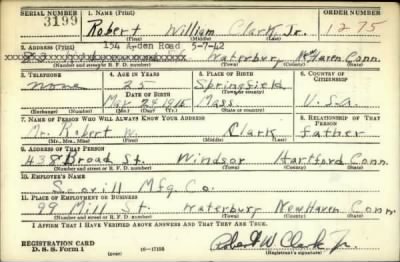 SERIAL NUMBER 1. NAME (Print) ORDER NUMBER
3199 Robert William Clark, Jr. 1275
(First) (Middle) (Last)
2. ADDRESS (Print) 154 Arden Road 5-7-42
Waterbury New Haven Conn.
(Number and street or R. F. D. number) (Town) (County) (State)
3. TELEPHONE 4. AGE IN YEARS 5. PLACE OF BIRTH 6. COUNTRY OF CITIZENSHIP
None 25 Springfield
DATE OF BIRTH (Town or county)
May 29 1915 Mass. U.S.A.
(Exchange) (Number) (Mo.) (Day) (Yr.) (State or country)
7. NAME OF PERSON WHO WILL ALWAYS KNOW YOUR ADDRESS 8. RELATIONSHIP OF THAT PERSON
Mr. Robert W. Clark father
(Mr., Mrs., Miss) (First) (Middle) (Last)
9. ADDRESS OF THAT PERSON
438 Broad St. Windsor Hartford Conn.
(Number and street or R. F. D. number) (Town) (County) (State)
10. EMPLOYER'S NAME
Scovill Mfg. Co.
11. PLACE OF EMPLOYMENT OR BUSINESS
99 Mill St. Waterbury New Haven Conn.
(Number and street or R. F. D. number) (Town) (County) (State)
I AFFIRM THAT I HAVE VERIFIED ABOVE ANSWERS AND THAT THEY ARE TRUE.
REGISTRATION CARD
D. S. S. Form 1 (over) 16-17105 Robert W Clark Jr.
(Registrant's signature)